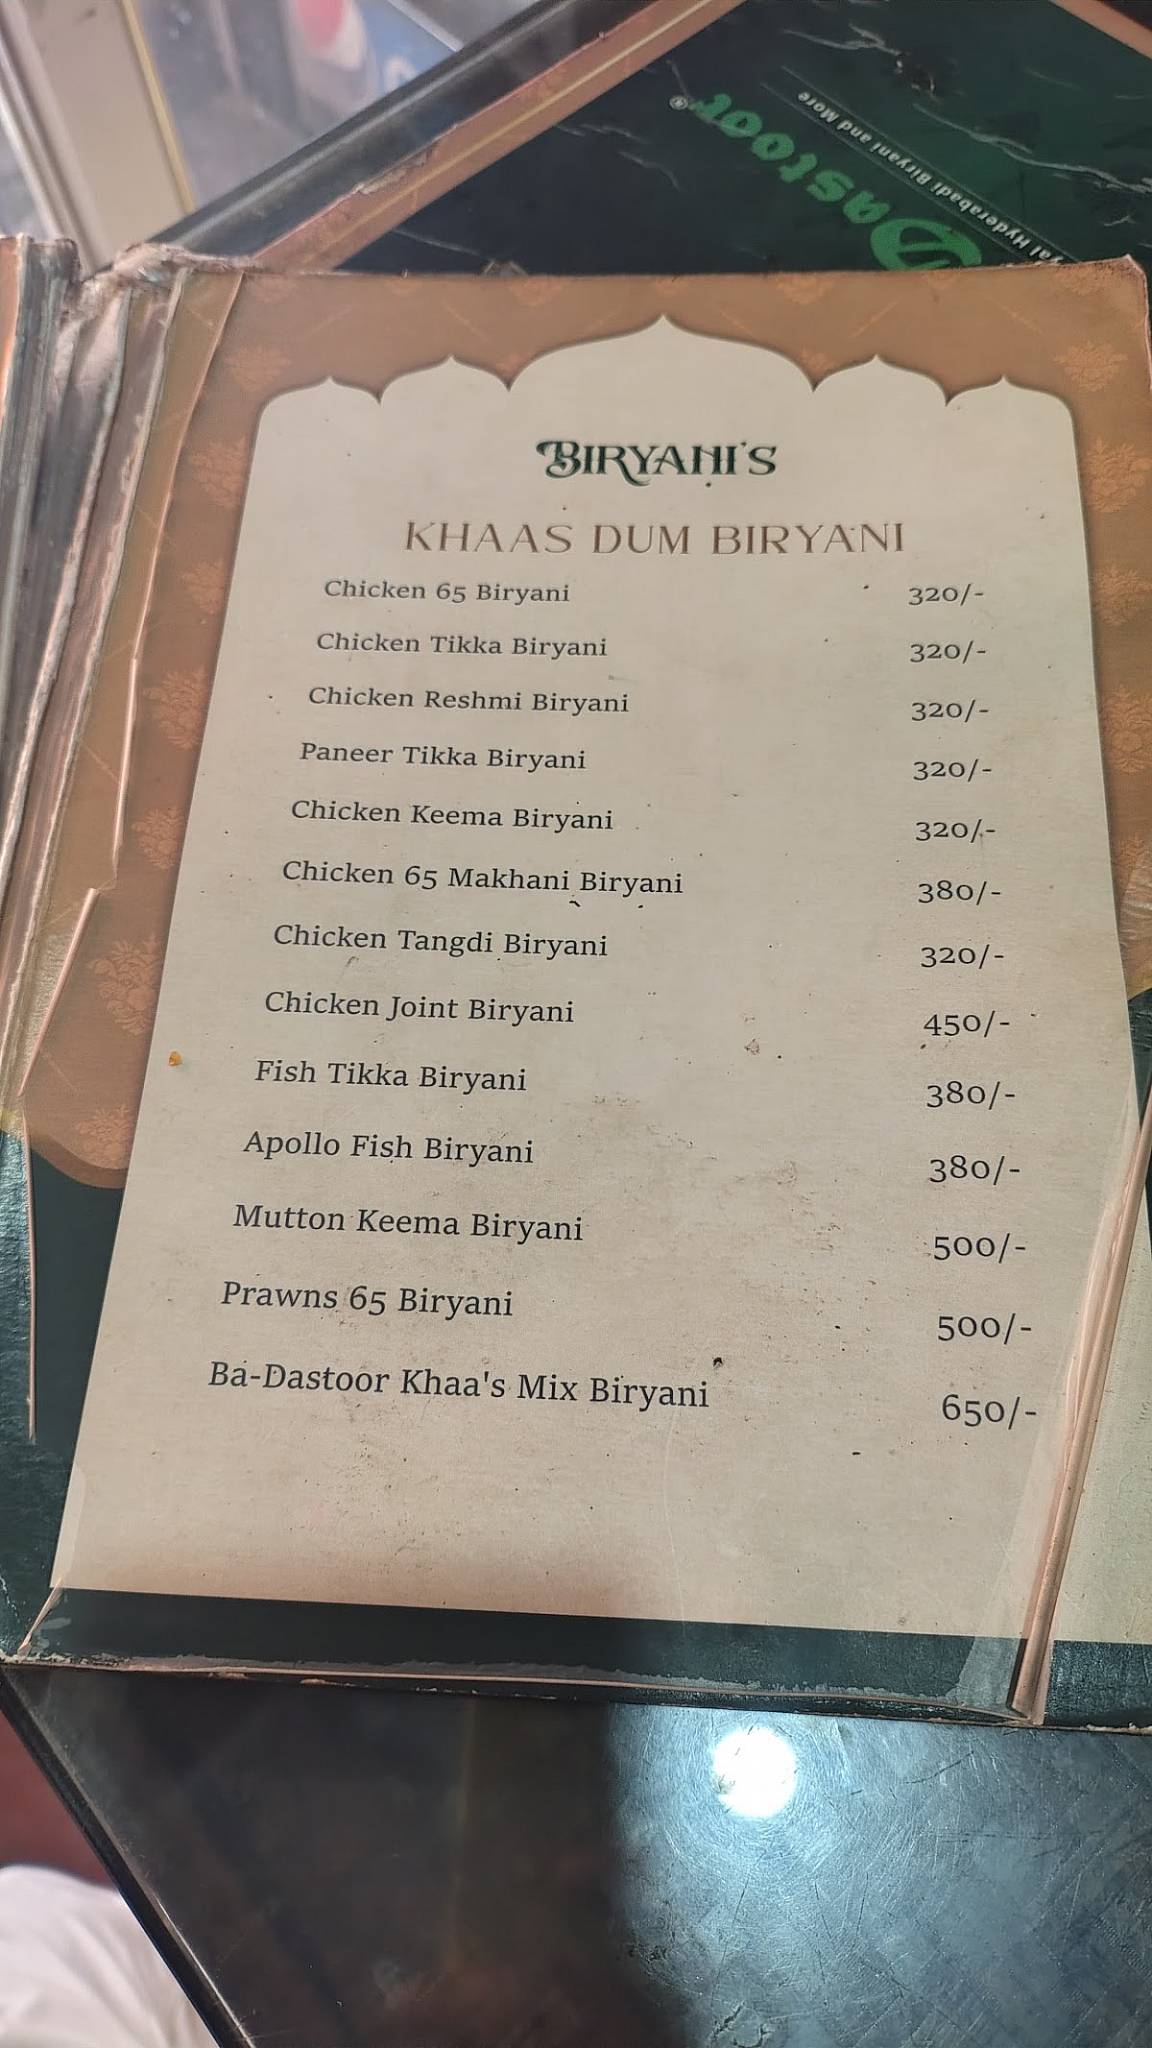 Dastoor®
yal Hyderabadi Biryani and More
BIRYANI'S
KHAAS DUM BIRYANI
Chicken 65 Biryani 320/-
Chicken Tikka Biryani 320/-
Chicken Reshmi Biryani 320/-
Paneer Tikka Biryani 320/-
Chicken Keema Biryani 320/-
Chicken 65 Makhani Biryani 380/-
Chicken Tangdi Biryani 320/-
Chicken Joint Biryani 450/-
Fish Tikka Biryani 380/-
Apollo Fish Biryani 380/-
Mutton Keema Biryani 500/-
Prawns 65 Biryani 500/-
Ba-Dastoor Khaa's Mix Biryani 650/-